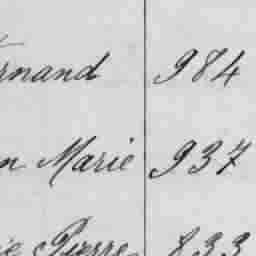 rnand 984
n Marie 937
ie Pierre 833